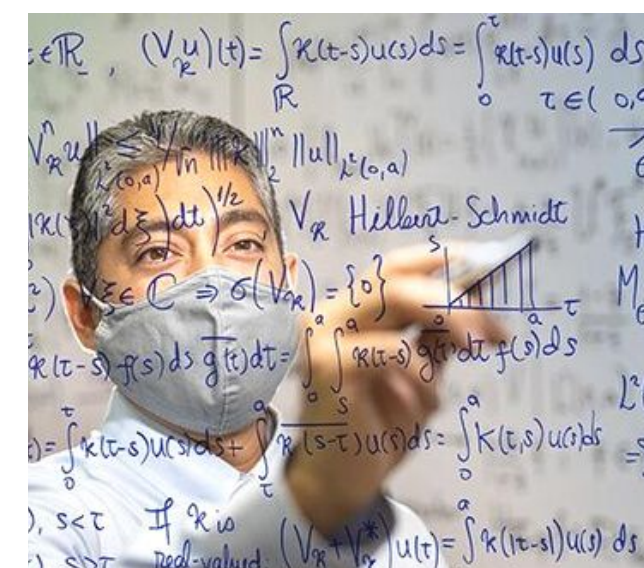 τ∈ℝ_, (V_κ u)(t) = ∫_ℝ κ(t-s)u(s)ds = ∫_0^τ κ(t-s)u(s) ds
τ∈(0,
V_κ^n u‖_{L²(0,a)} ≤ 1/√n! ‖κ‖_2^n ‖u‖_{L²(0,a)}
|κ(τ)|² dξ)dt)^{1/2} V_κ Hilbert-Schmidt
s
²) ∀ξ∈ ℂ ⇒ σ(V_κ) = {0}
0 a τ
κ(τ-s) f(s) ds g(t)dt = ∫_0^a ∫_s^a κ(τ-s) g(t)dt f(s)ds
L²
t) = ∫_0^τ κ(τ-s)u(s)ds + ∫_τ^a κ(s-τ)u(s)ds = ∫_0^a K(t,s)u(s)ds
), s<τ If κ is
), s>τ real-valued: (V_κ + V_κ^*)u(t) = ∫_0^a κ(|t-s|)u(s) ds